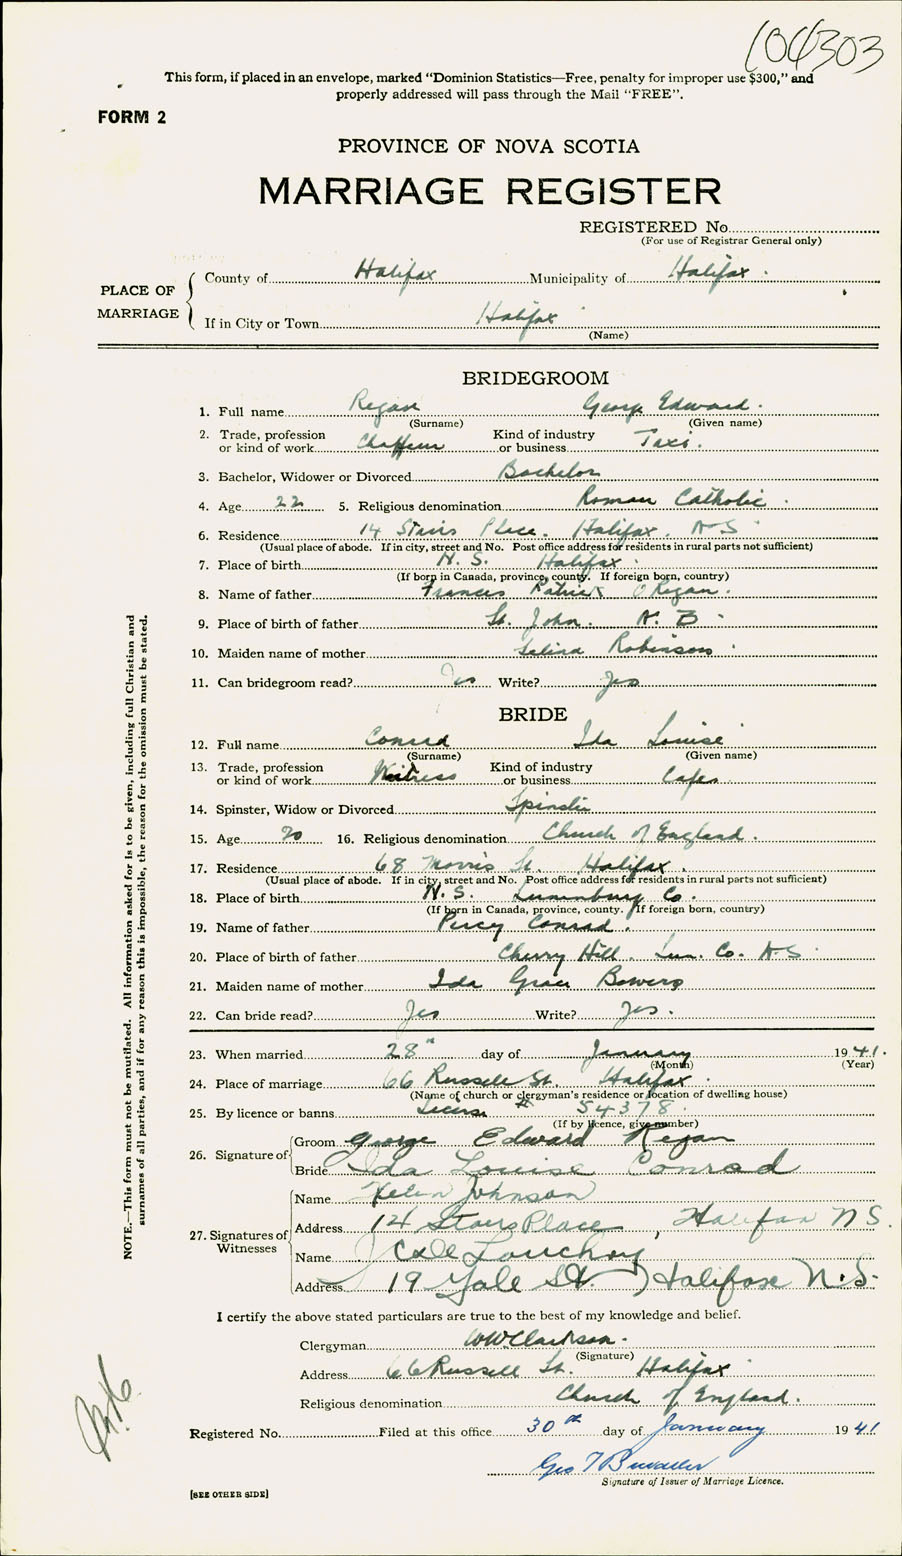 104303
This form, if placed in an envelope, marked “Dominion Statistics—Free, penalty for improper use $300,” and
properly addressed will pass through the Mail “FREE”.
FORM 2
PROVINCE OF NOVA SCOTIA
MARRIAGE REGISTER
REGISTERED No
(For use of Registrar General only)
PLACE OF MARRIAGE
County of Halifax Municipality of Halifax
If in City or Town Halifax
(Name)
BRIDEGROOM
1. Full name Regan George Edward
(Surname) (Given name)
2. Trade, profession or kind of work Chaffeur Kind of industry or business Taxi
3. Bachelor, Widower or Divorced Bachelor
4. Age 22 5. Religious denomination Roman Catholic
6. Residence 14 Stairs Place. Halifax. N.S
(Usual place of abode. If in city, street and No. Post office address for residents in rural parts not sufficient)
7. Place of birth N. S. Halifax
(If born in Canada, province, county. If foreign born, country)
8. Name of father Francis Patrick O Regan
9. Place of birth of father St. John. N. B
10. Maiden name of mother Selina Robinson
11. Can bridegroom read? Yes Write? Yes
BRIDE
12. Full name Conrad Ida Louise
(Surname) (Given name)
13. Trade, profession or kind of work Waitress Kind of industry or business Cafes
14. Spinster, Widow or Divorced Spinster
15. Age 20 16. Religious denomination Church of England.
17. Residence 68 Morris St. Halifax
(Usual place of abode. If in city, street and No. Post office address for residents in rural parts not sufficient)
18. Place of birth N. S. Lunenburg Co.
(If born in Canada, province, county. If foreign born, country)
19. Name of father Percy Conrad.
20. Place of birth of father Cherry Hill. Lun. Co. N.S
21. Maiden name of mother Ida Grace Bowers
22. Can bride read? Yes Write? Yes.
23. When married 28th day of January 1941.
(Month) (Year)
24. Place of marriage 66 Russell St. Halifax
(Name of church or clergyman's residence or location of dwelling house)
25. By licence or banns License # 54378
(If by licence, give number)
26. Signature of Groom George Edward Regan
Bride Ida Louise Conrad
27. Signatures of Witnesses
Name Helen Johnson
Address 14 Stairs Place, Halifax N S.
Name
Address 19 Yale St. Halifax N.S.
I certify the above stated particulars are true to the best of my knowledge and belief.
Clergyman WW Clarkson
(Signature)
Address 66 Russell St. Halifax
Religious denomination Church of England.
Registered No. Filed at this office 30th day of January 1941
Geo
Signature of Issuer of Marriage Licence.
[SEE OTHER SIDE]
NOTE.—This form must not be mutilated. All information asked for is to be given, including full Christian and
surnames of all parties, and if for any reason this is impossible, the reason for the omission must be stated.